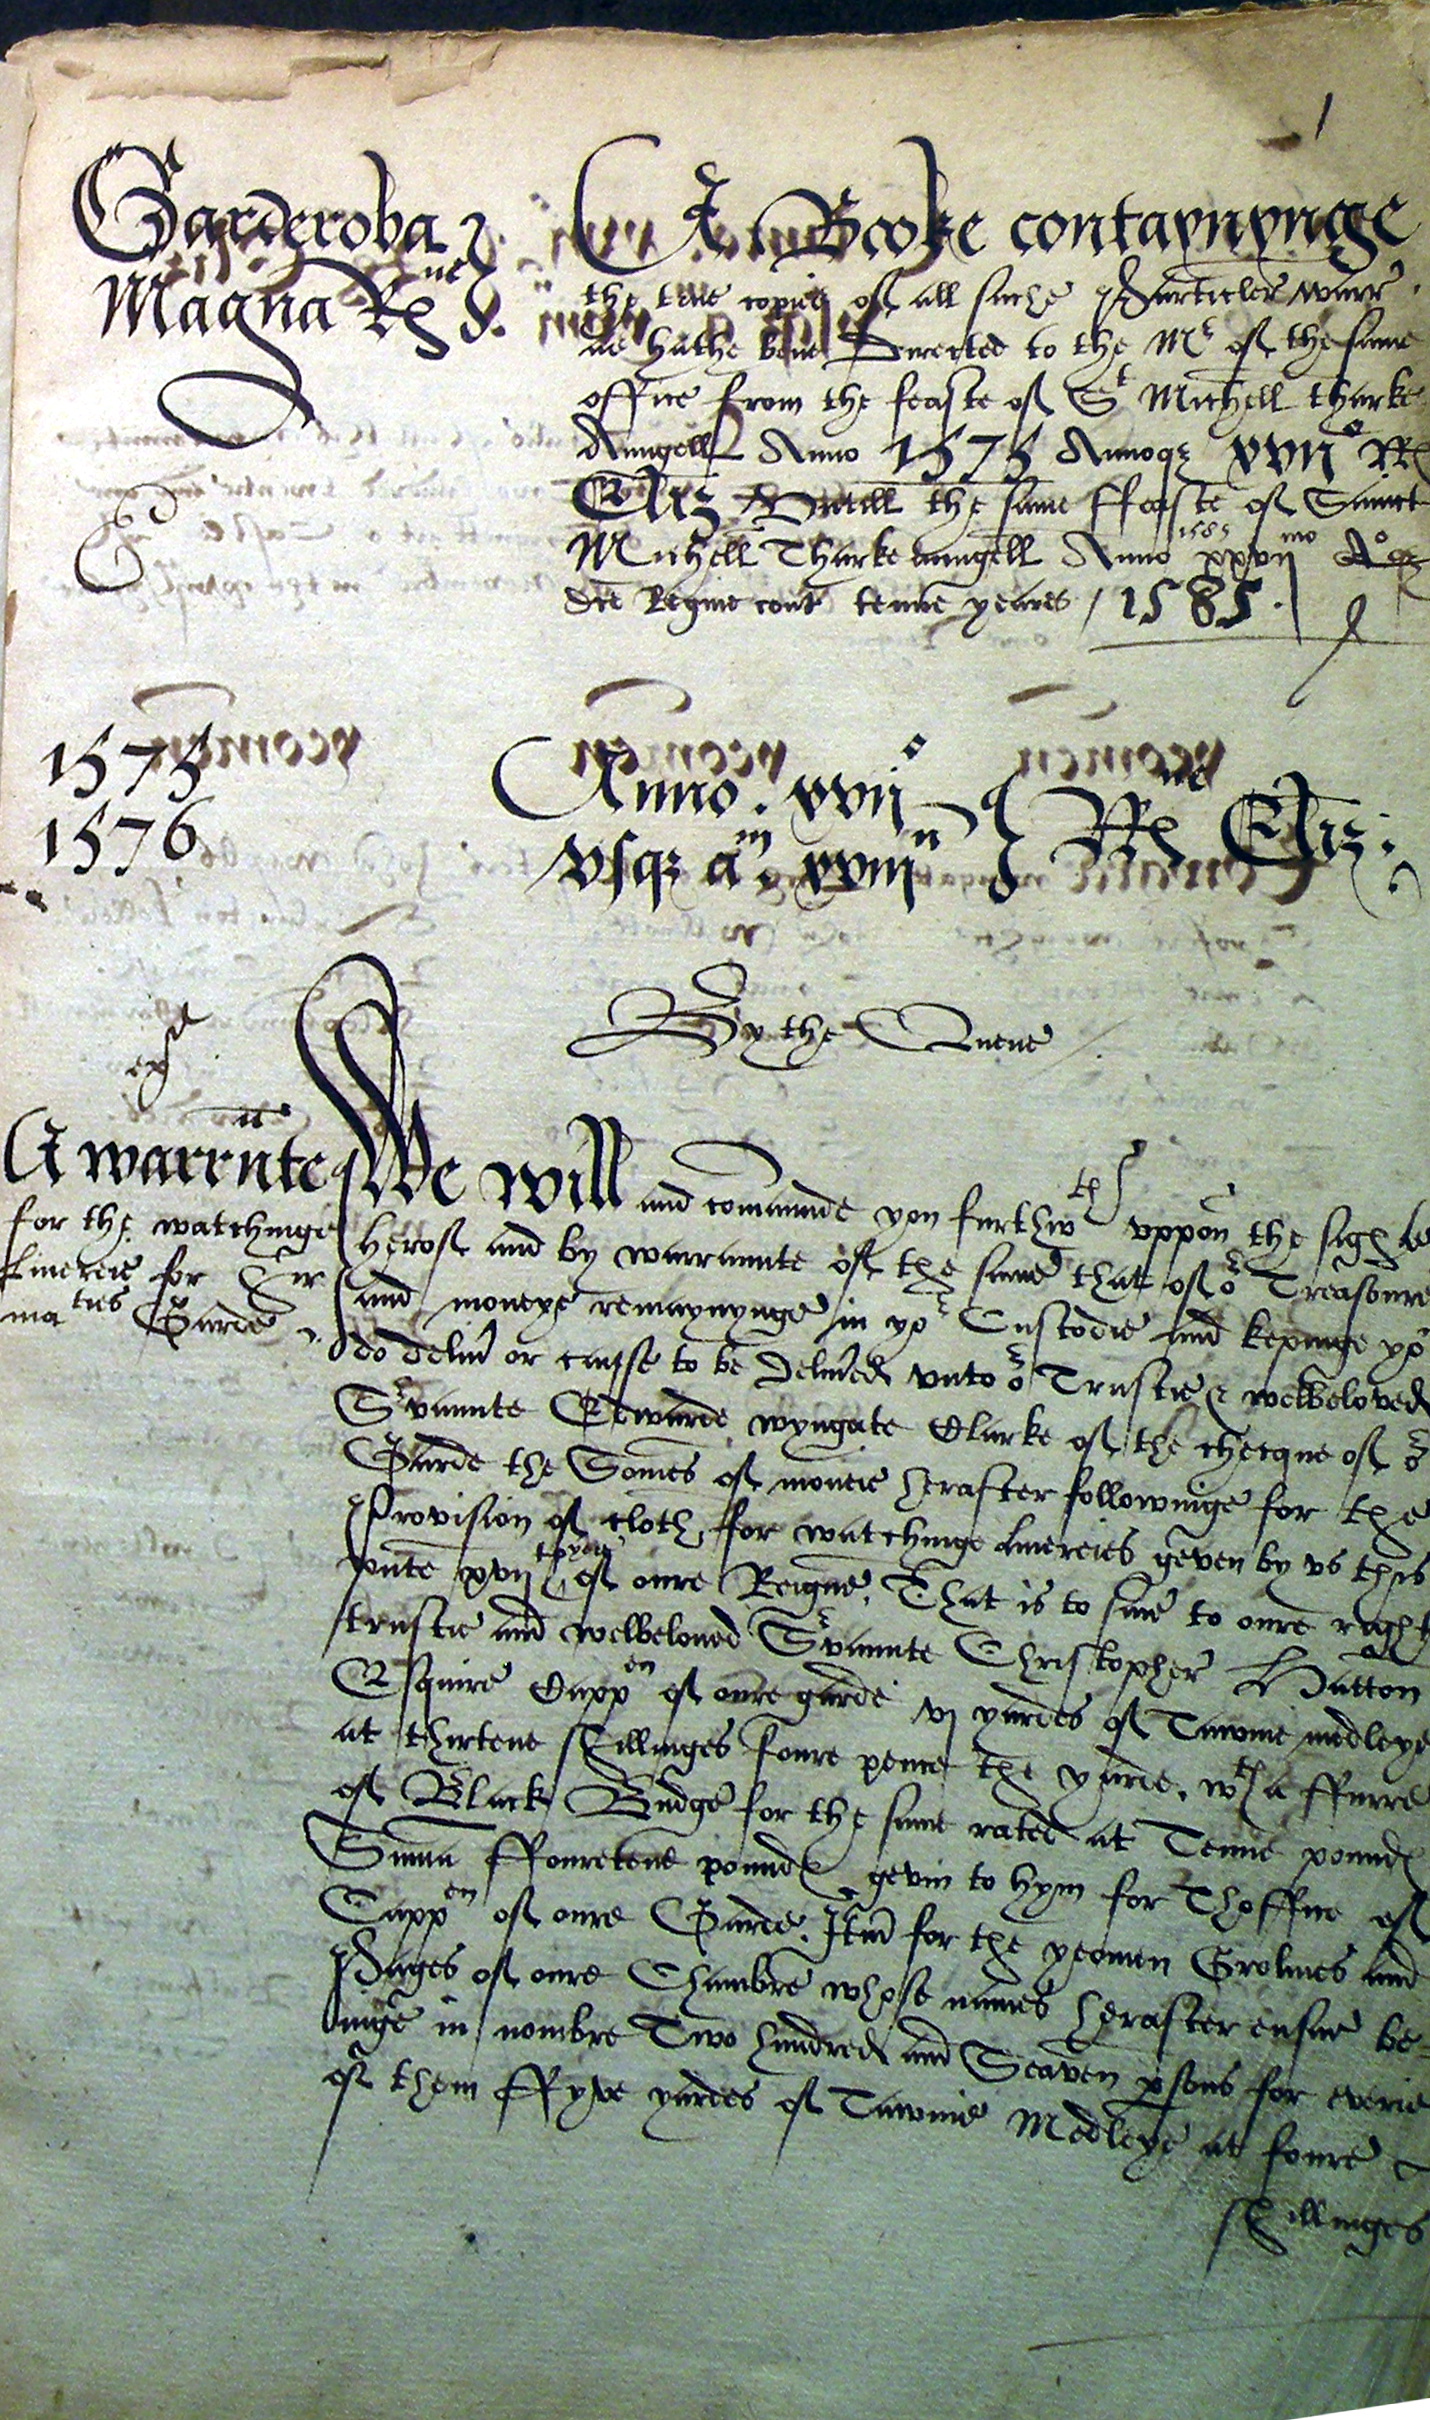 1
Garderoba
Magna Rx ne
A Booke contaynynge
the trne copies of all suche Particler warr
as hathe bene Directed to the Mr of the same
office from the feaste of St Michell tharke
Anngell Anno 1575 Annoqz xvijo Rx
Eliz Vntill the same ffeaste of Sainct
Michell Tharke anngell Anno 1585 xxvij mo
dce Regine cont tenne yeares / 1585.
1575
1576
Anno . xvijo
vsqz a m . xviij n
Rx ne Eliz :
By the Quene
exd
A warrnte
for the watchinge
Liuereie for hir
ma ties Garde
We will and comaunde you furthw th vppon the sight
Herof and by warraunte of the same that of or Treasoure
and moneye remaynynge in yor Custodie and kepinge yo
do deliu or cause to be deliued vnto or Trustie & welbeloved
Sruaunte Edwarde wyngate Clarke of the checque of or
Garde the Somes of moneie herafter followinge for the
Provision of cloth for watchinge liuereies geven by vs this
pnte xvij th yeare of oure Reigne. That is to saie to oure right
trustie and welbeloued Sruaunte Christopher Hatton
Esquire Capp en of oure garde vj yardes of Tawnie medleye
at thirtene shillinges foure pence the yarde. wth a ffurre
of Black Budge for the same rated at Tenne pounds
Suma ffouretene pounds gevin to hym for Thoffice of
Capp en of oure Garde. Itm for the yeomen Gromes and
Pages of oure Chambre whose names herafter ensue be=
inge in nombre Two hundred and Seaven psons for everie
of them ffyve yardes of Tawnie Medleye at foure
shillinges